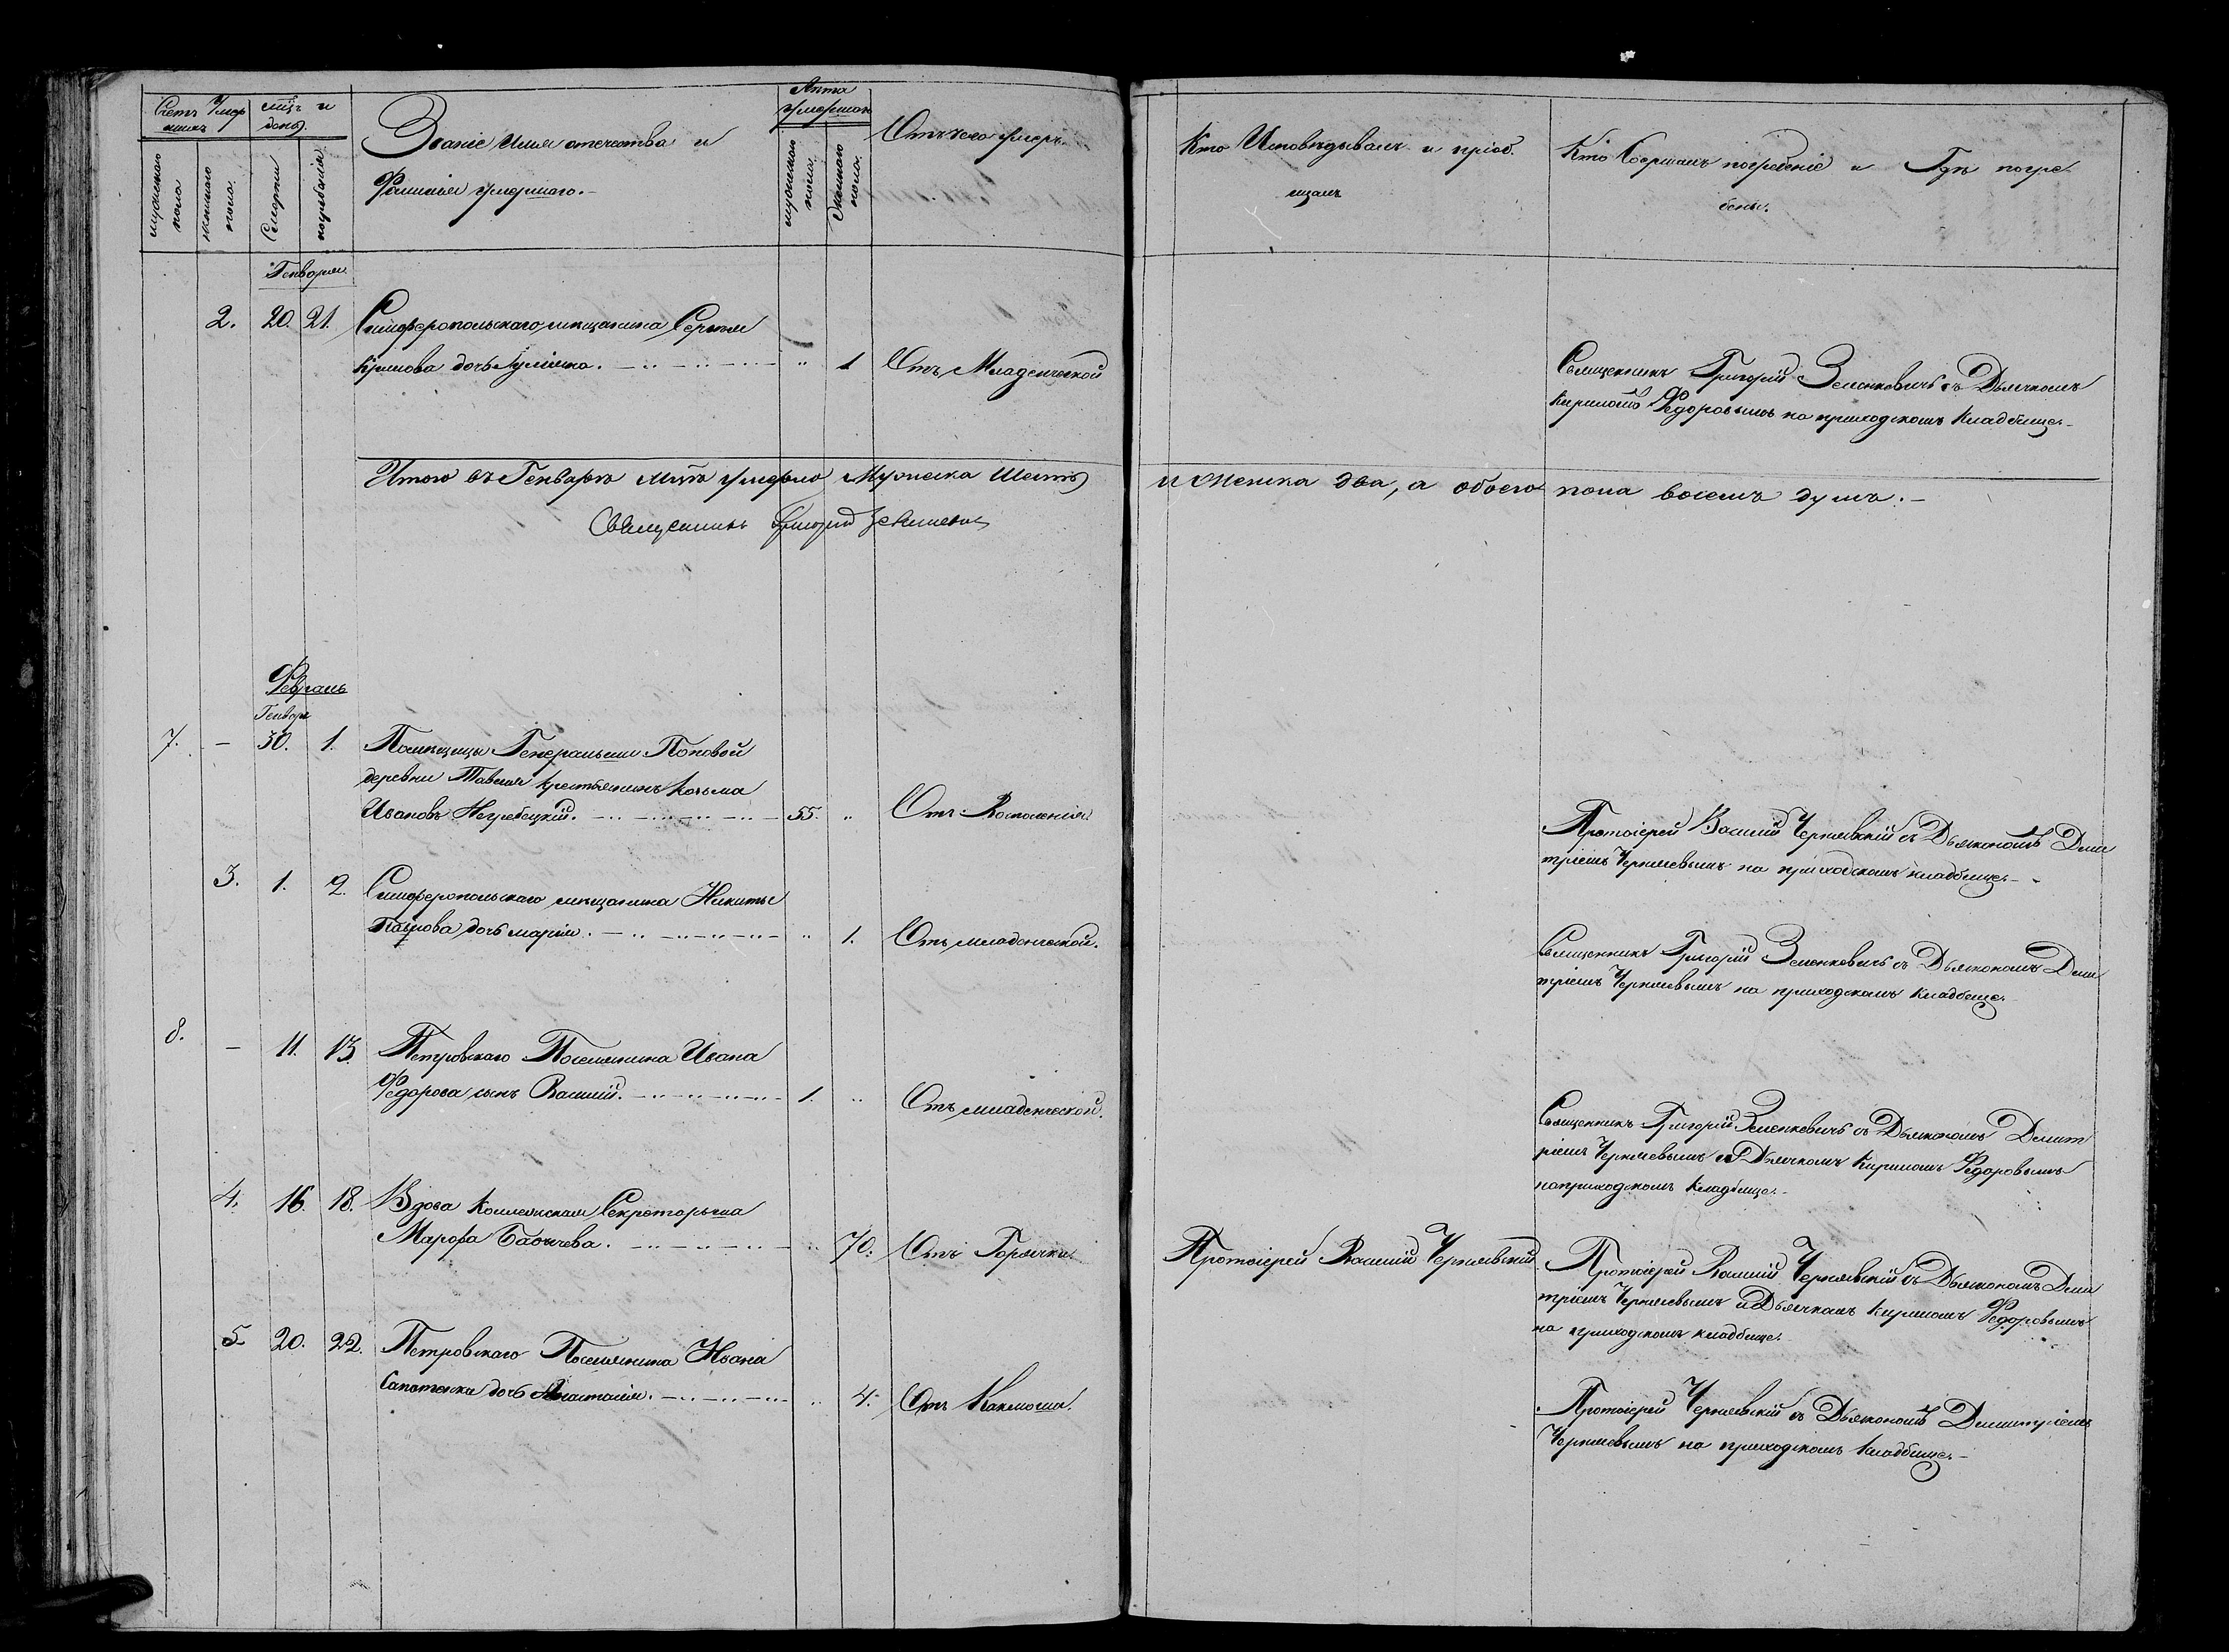 Счетъ Умер
шихъ
мужескаго
пола
женскаго
пола.
мцъ и
день.
Смерти
погребенія
Званіе Имя отечество и
Фамилія умершаго.-
Лѣта
умершаго
мужескаго
пола.
женскаго
пола.
Отъ чего умеръ.
Кто Исповѣдывалъ и пріоб.
щалъ
Кто Совершалъ погребеніе и Гдѣ погре
бены.
Генворя
2. 20. 21. Симферопольскаго мѣщанина Сергѣя
дочь 1 Отъ Младенческой
Священникъ Григорій Зеленкевичъ съ Дьячкомъ
Кириломъ Федоровымъ на приходскомъ Кладбище.-
Итого въ Генварѣ Мцѣ умерло Мужеска Шесть и Женска два, а обоего пола восемь душъ.-
Священникъ Григорій
Февраль
Генворя
7. - 30. 1. Помѣщицы Генеральши Поповой
деревни Тавеля Крестьянинъ Козьма
Ивановъ Негребецкій. 55. Отъ Воспаленія
Протоіерей Василій Чернявскій съ Дьякономъ Дими
тріемъ Черняевымъ на приходскомъ кладбище.-
3. 1. 2. Симферопольскаго мѣщанина Никиты
дочь марія. 1. Отъ младенческой.
Священникъ Григорій Зеленкевичъ съ Дьякономъ Дими
тріемъ Черняевымъ на приходскомъ Кладбище.-
8. - 11. 13. Петровскаго Поселянина Ивана
Федорова сынъ Василій. 1. Отъ младенческой.
Священникъ Григорій Зеленкевичъ съ Дьякономъ Димит
ріемъ Черняевымъ и Дьячкомъ Кириломъ Федоровымъ
на приходскомъ Кладбище.-
4. 16. 18. Вдова Коллежская Секреторьша
Марфа Бабичева. 70. Отъ Горячки.
Протоіерей Василій Чернявскій
Протоіерей Василій Чернявскій съ Дьякономъ Дими
тріемъ Черняевымъ и Дьячкомъ Кириломъ Федоровымъ
на приходскомъ кладбище.
5. 20. 22. Петровскаго Поселянина Ивана
дочь Анастасія. 4. Отъ Коклюша.
Протоіерей Чернявскій съ Дьякономъ Димитріемъ
Черняевымъ на приходскомъ Кладбище.-